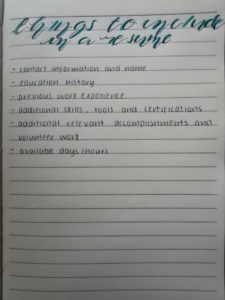 things to include
in a resume
- contact information and name
- education history
- previous work experience
- additional skills, tools and certifications
- additional relevant accomplishments and
volunteer work
- available days/hours